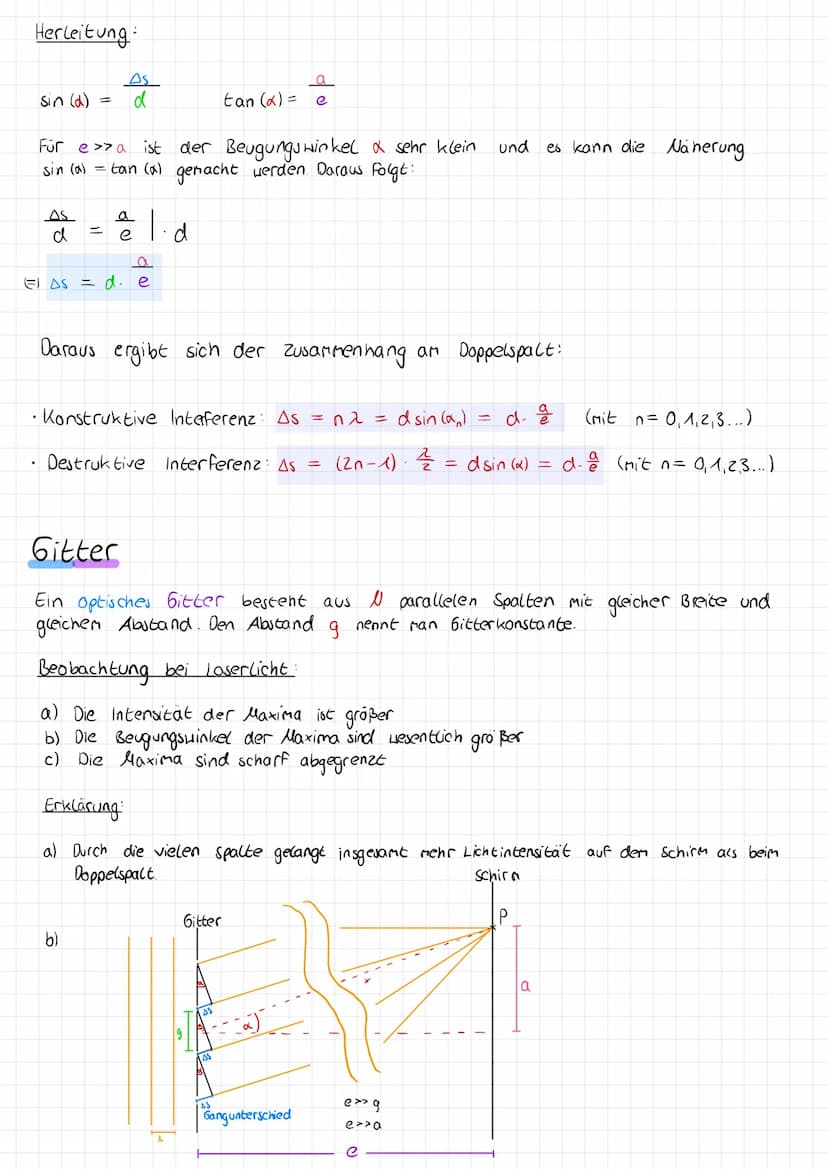 Herleitung:
sin (α) = Δs/d tan (α) = a/e
Für e >> a ist der Beugungswinkel α sehr klein und es kann die Näherung
sin (α) = tan (α) gemacht werden. Daraus folgt:
Δs/d = a/e | · d
(=) Δs = d · a/e
Daraus ergibt sich der Zusammenhang am Doppelspalt:
· Konstruktive Inteferenz: Δs = nλ = d sin(αₙ) = d · a/e (mit n = 0,1,2,3...)
· Destruktive Interferenz: Δs = (2n-1) · λ/2 = d sin(α) = d · a/e (mit n = 0,1,23...)
Gitter
Ein optisches Gitter besteht aus N parallelen Spalten mit gleicher Breite und
gleichem Abstand. Den Abstand g nennt man Gitterkonstante.
Beobachtung bei Laserlicht:
a) Die Intensität der Maxima ist größer
b) Die Beugungswinkel der Maxima sind wesentlich größer
c) Die Maxima sind scharf abgegrenzt
Erklärung:
a) Durch die vielen Spalte gelangt insgesamt mehr Lichtintensität auf dem Schirm als beim
Doppelspalt.
Schirm
Gitter
P
b)
a
x
Δs
α)
g
Δs
Δs
Gangunterschied
e>>g
e>>a
λ
e